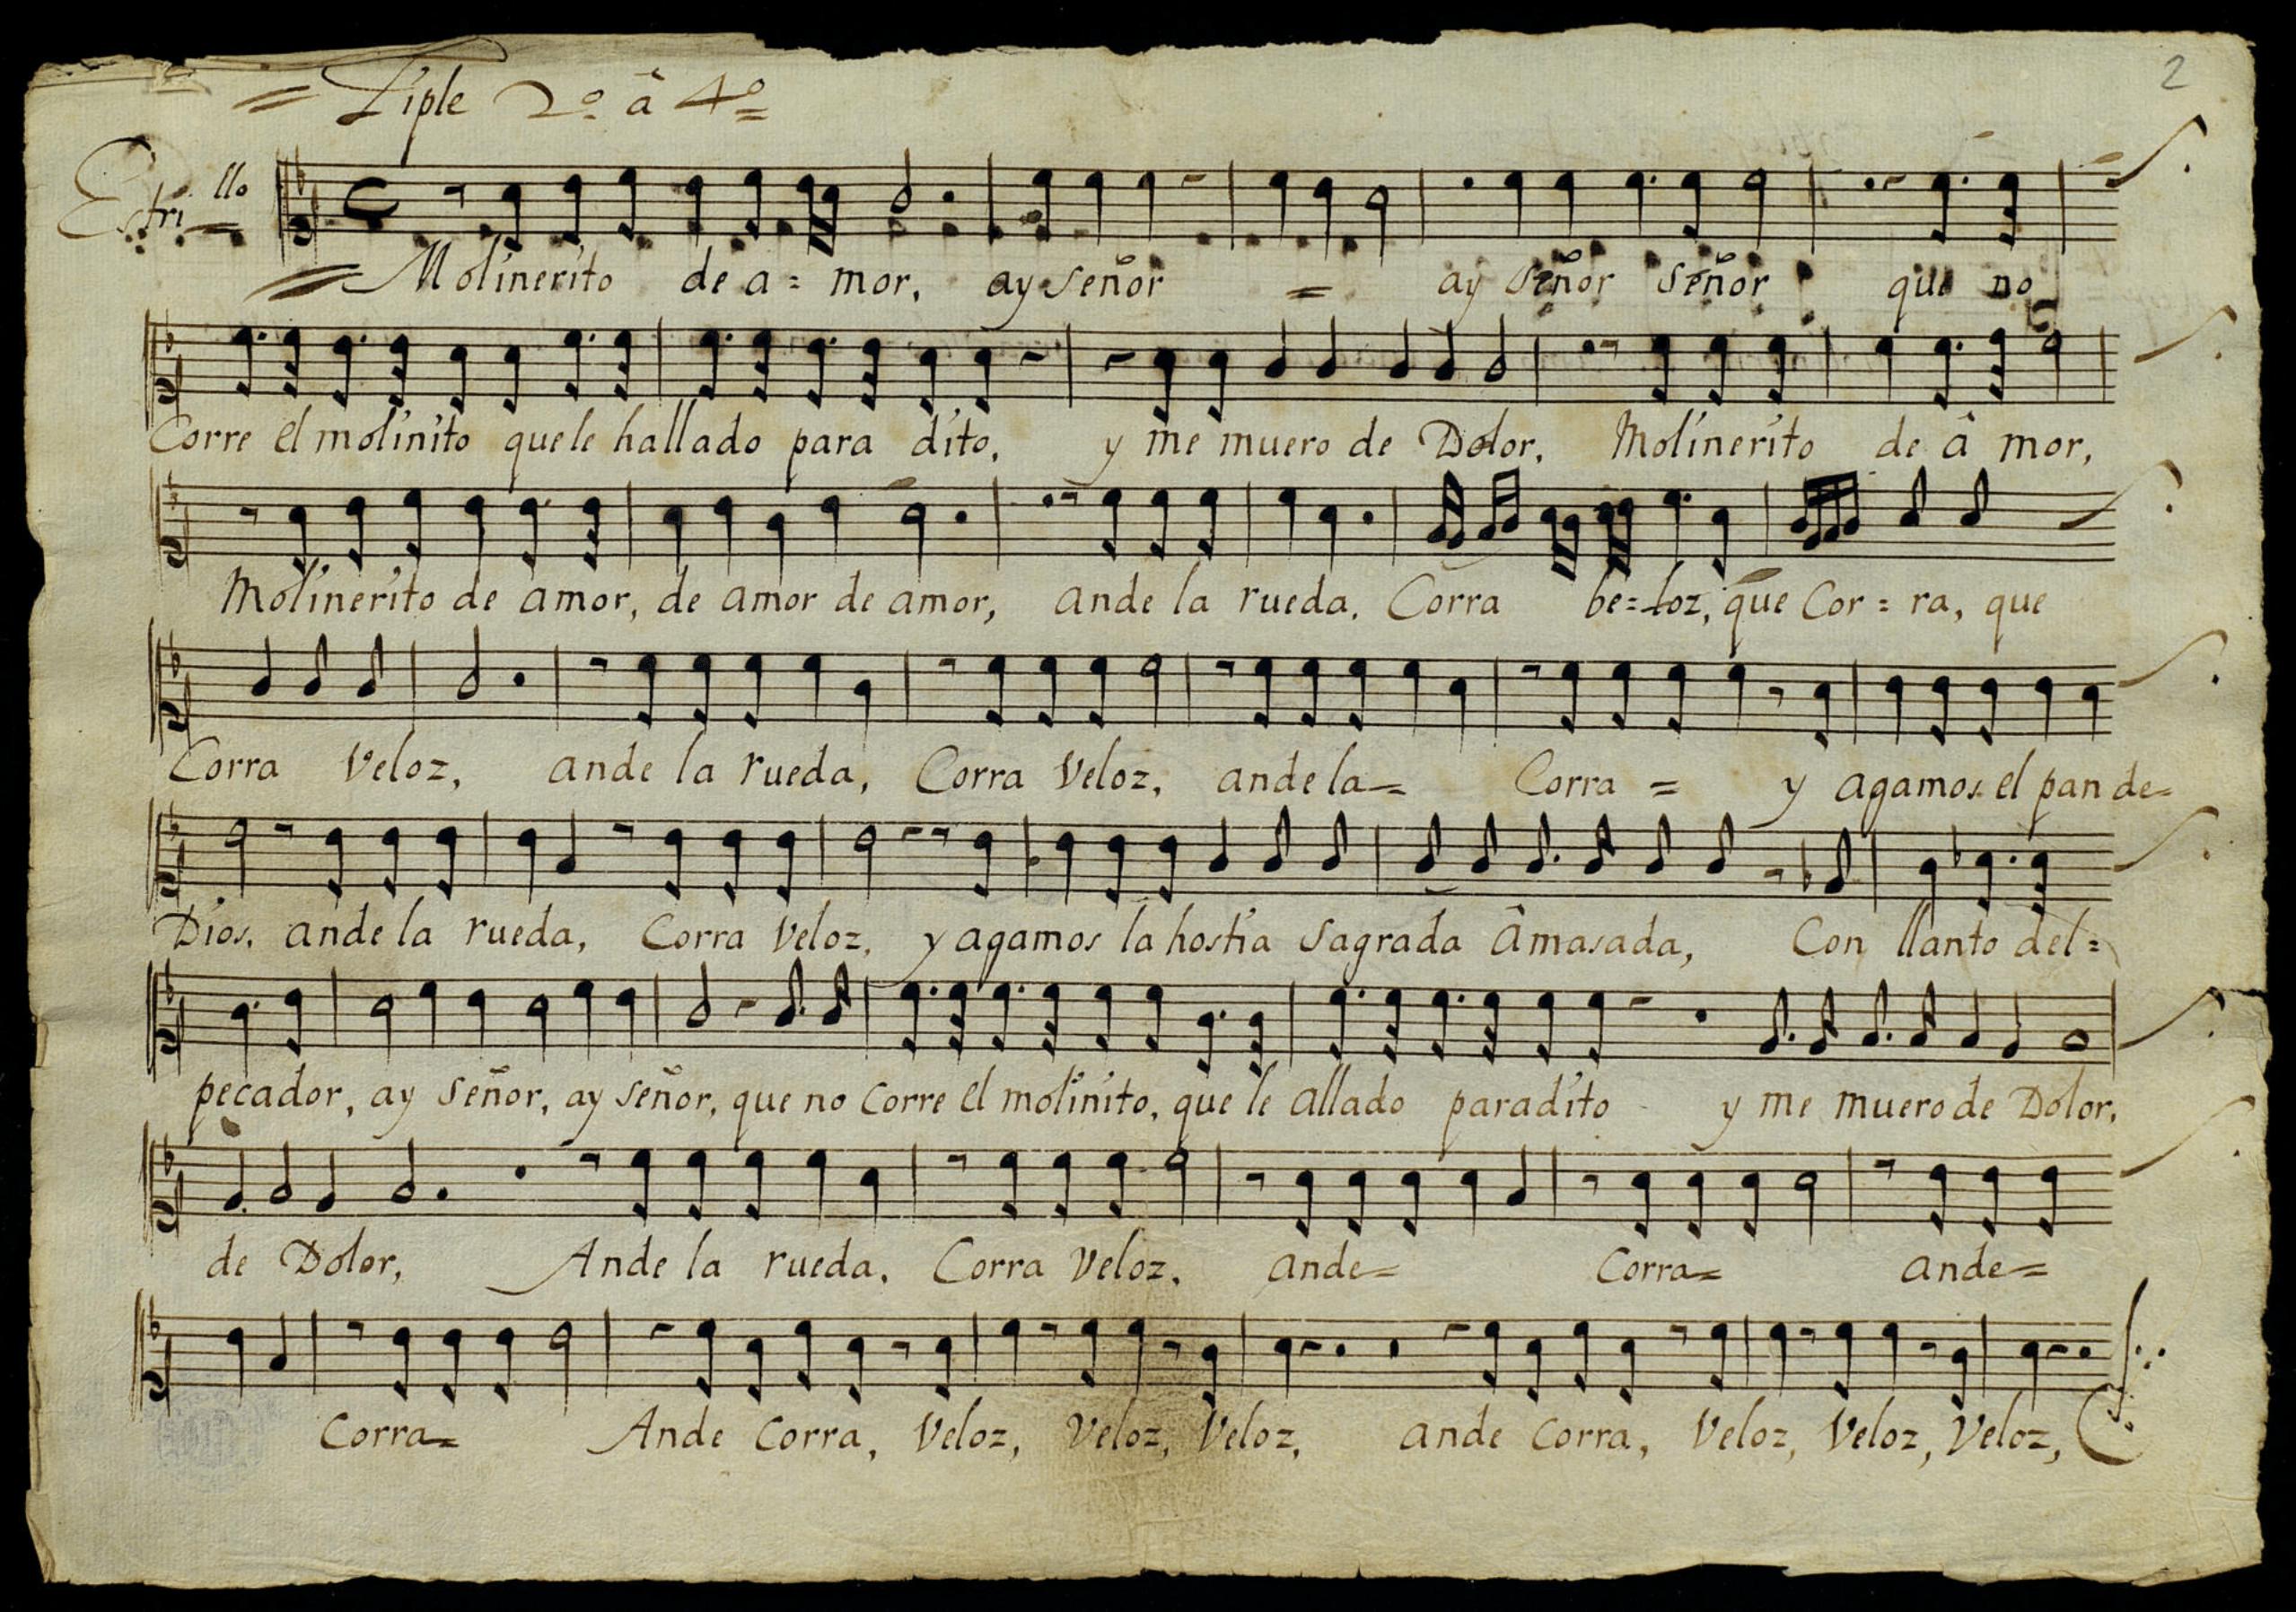 2
= Tiple 2º â 4º =
Estri llo
= Molinerito de a = mor, ay señor = ay señor señor que no
Corre el molinito que le hallado para dito, y me muero de Dolor, Molinerito de â mor,
Molinerito de amor, de amor de amor, ande la rueda. Corra be=loz, que Cor=ra, que
Corra Veloz, ande la rueda, Corra Veloz, ande la = Corra = y agamos el pan de =
Dios. ande la rueda, Corra Veloz, y agamos la hostia Sagrada âmasada, Con llanto del =
pecador, ay señor, ay señor, que no Corre el molinito, que le allado paradito y me muero de Dolor,
de Dolor, Ande la rueda. Corra Veloz, ande = Corra = ande =
Corra = Ande Corra, Veloz, Veloz, Veloz, ande Corra, Veloz, Veloz, Veloz,